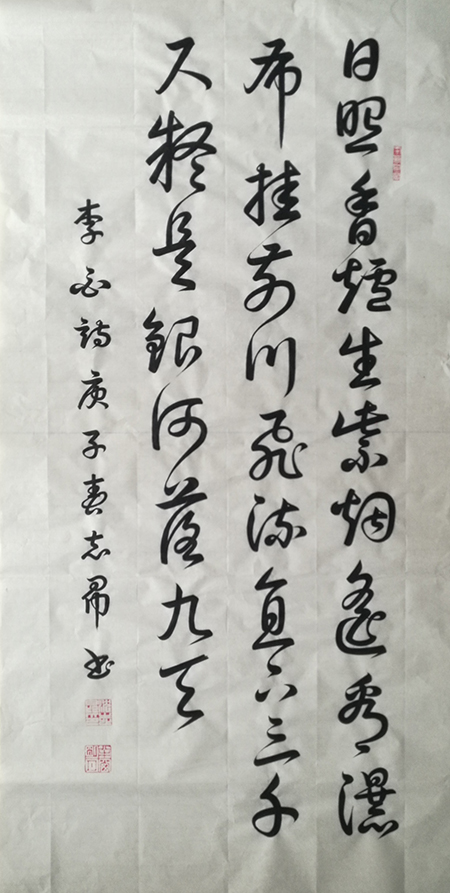 日照香爐生紫烟遙看瀑
布挂前川飛流直下三千
尺疑是銀河落九天
李白詩庚子春志書